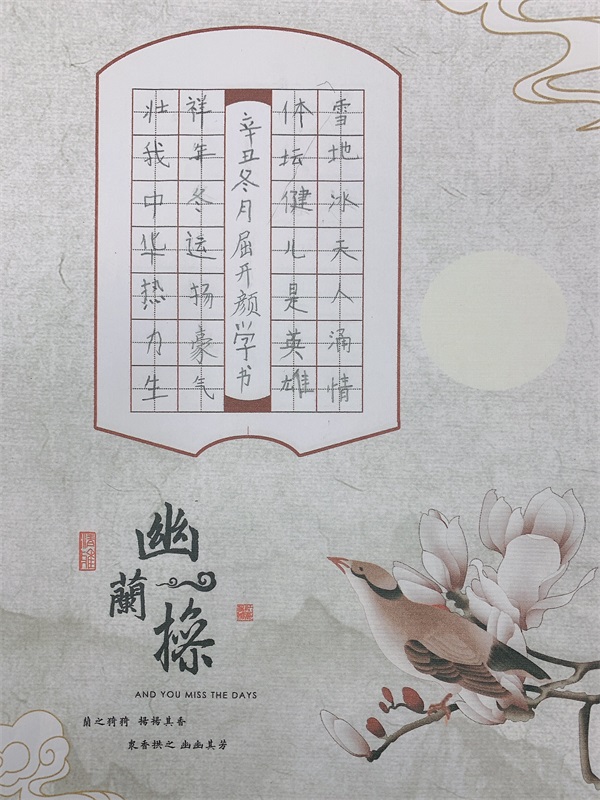 雪地冰天人涌情
体坛健儿是英雄
辛丑冬月屈开颜学书
祥年冬运扬豪气
壮我中华热力生
幽蘭操
AND YOU MISS THE DAYS
蘭之猗猗 揚揚其香
衆香拱之 幽幽其芳